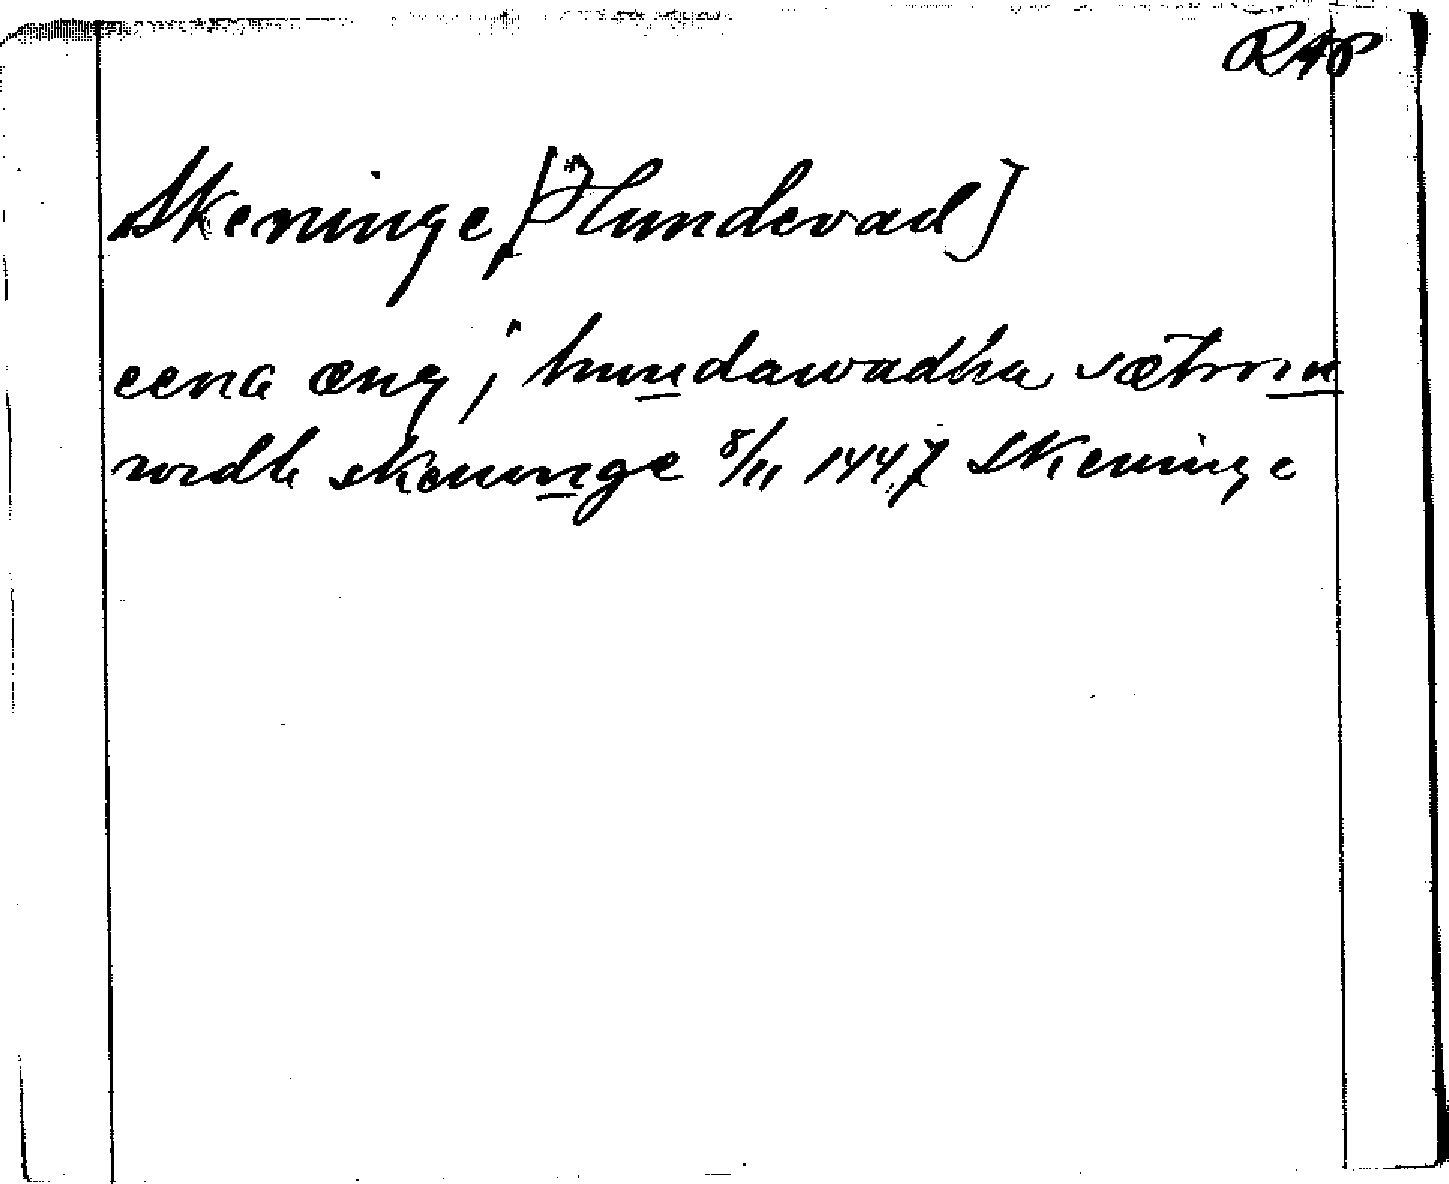 RAP
Skeninge, [Hundevad]
eena æng j hundawadha sætrom
widh skeninge 8/11 1447 Skeninge